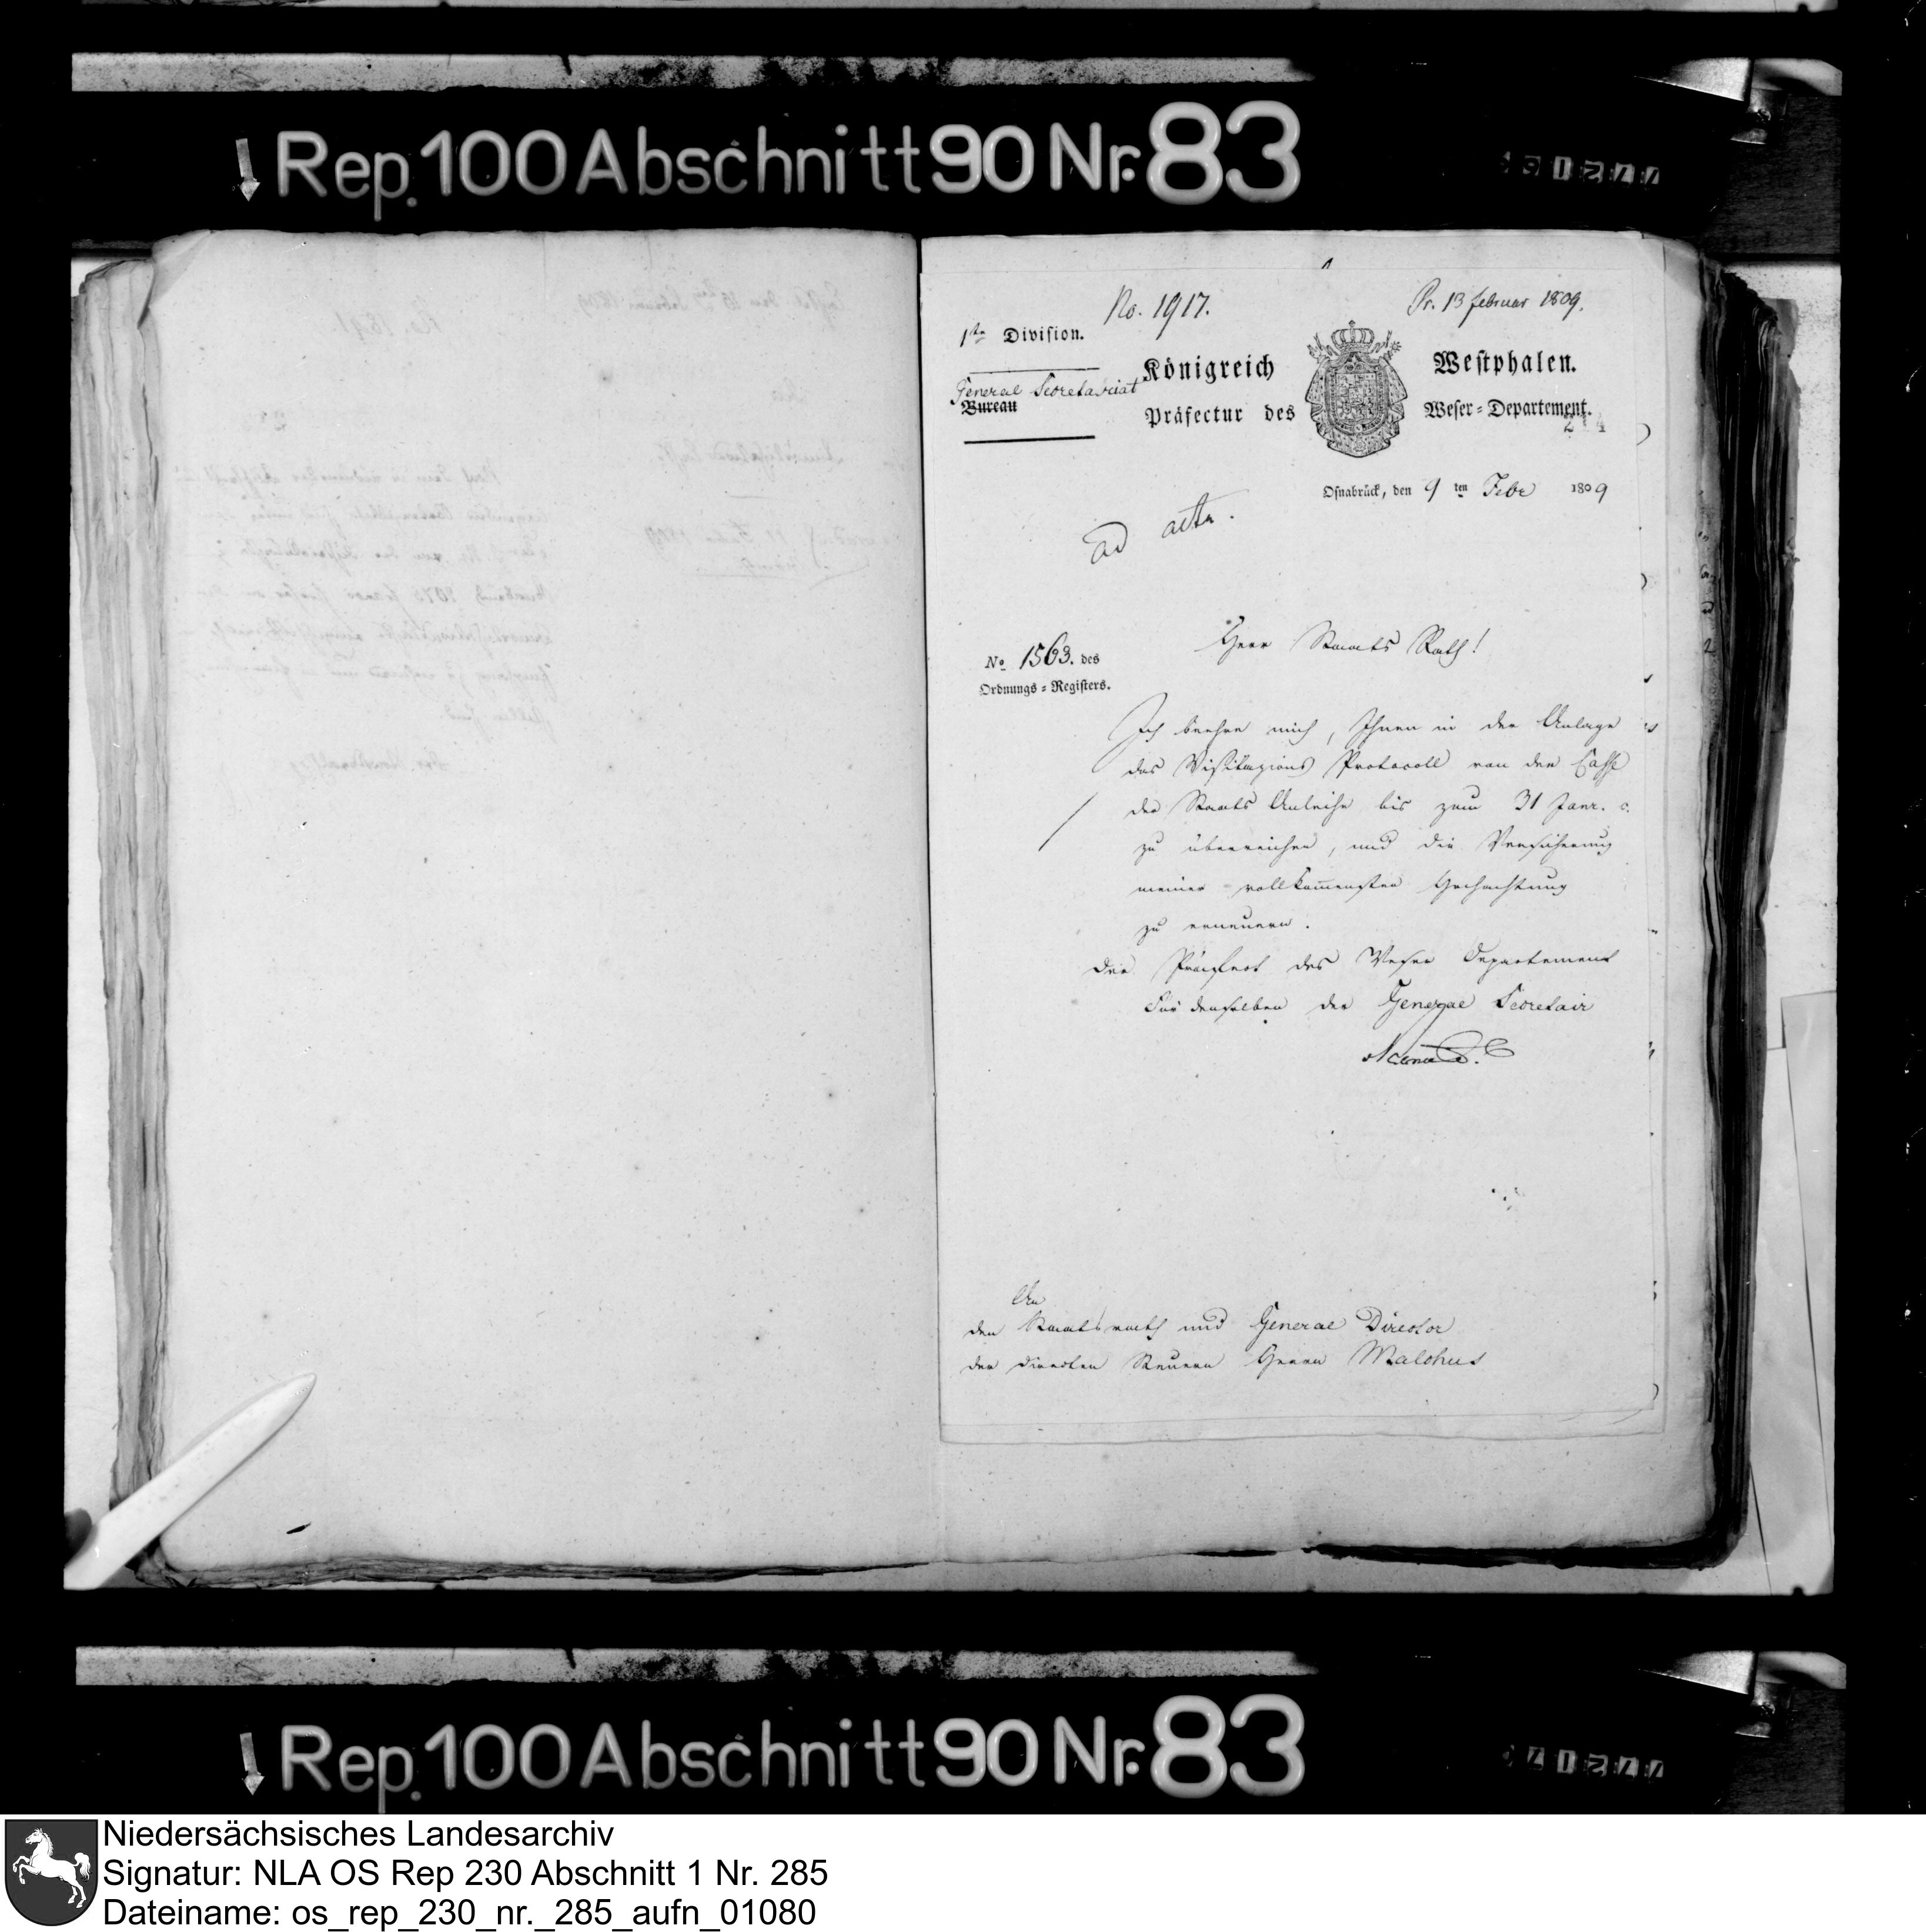 Rep. 100 Abschnitt 90 Nr. 83
No. 1917.
Pr. 13 februar 1809.
1te Division.
General Secretariat
Bureau
Königreich Westphalen.
Präfectur des Weser-Departement.
214
Osnabrück, den 9 ten Febr 1809
ad acta.
Herr Staats Rath!
No 1563. des
Ordnungs-Registers.
Ich beehre mich, Ihnen in der Anlage
das Visitazions Protocoll von der Casse
der Staats Anleihe bis zum 31 Janr. c.
zu überreichen, und die Versicherung
meiner vollkommensten Hochachtung
zu erneuern.
Der Präfect des Weser Departement
Für denselben der General Secretair
An
den Staatsrath und General Director
der directen Steuern Herrn Malchus
Rep. 100 Abschnitt 90 Nr. 83
Niedersächsisches Landesarchiv
Signatur: NLA OS Rep 230 Abschnitt 1 Nr. 285
Dateiname: os_rep_230_nr._285_aufn_01080